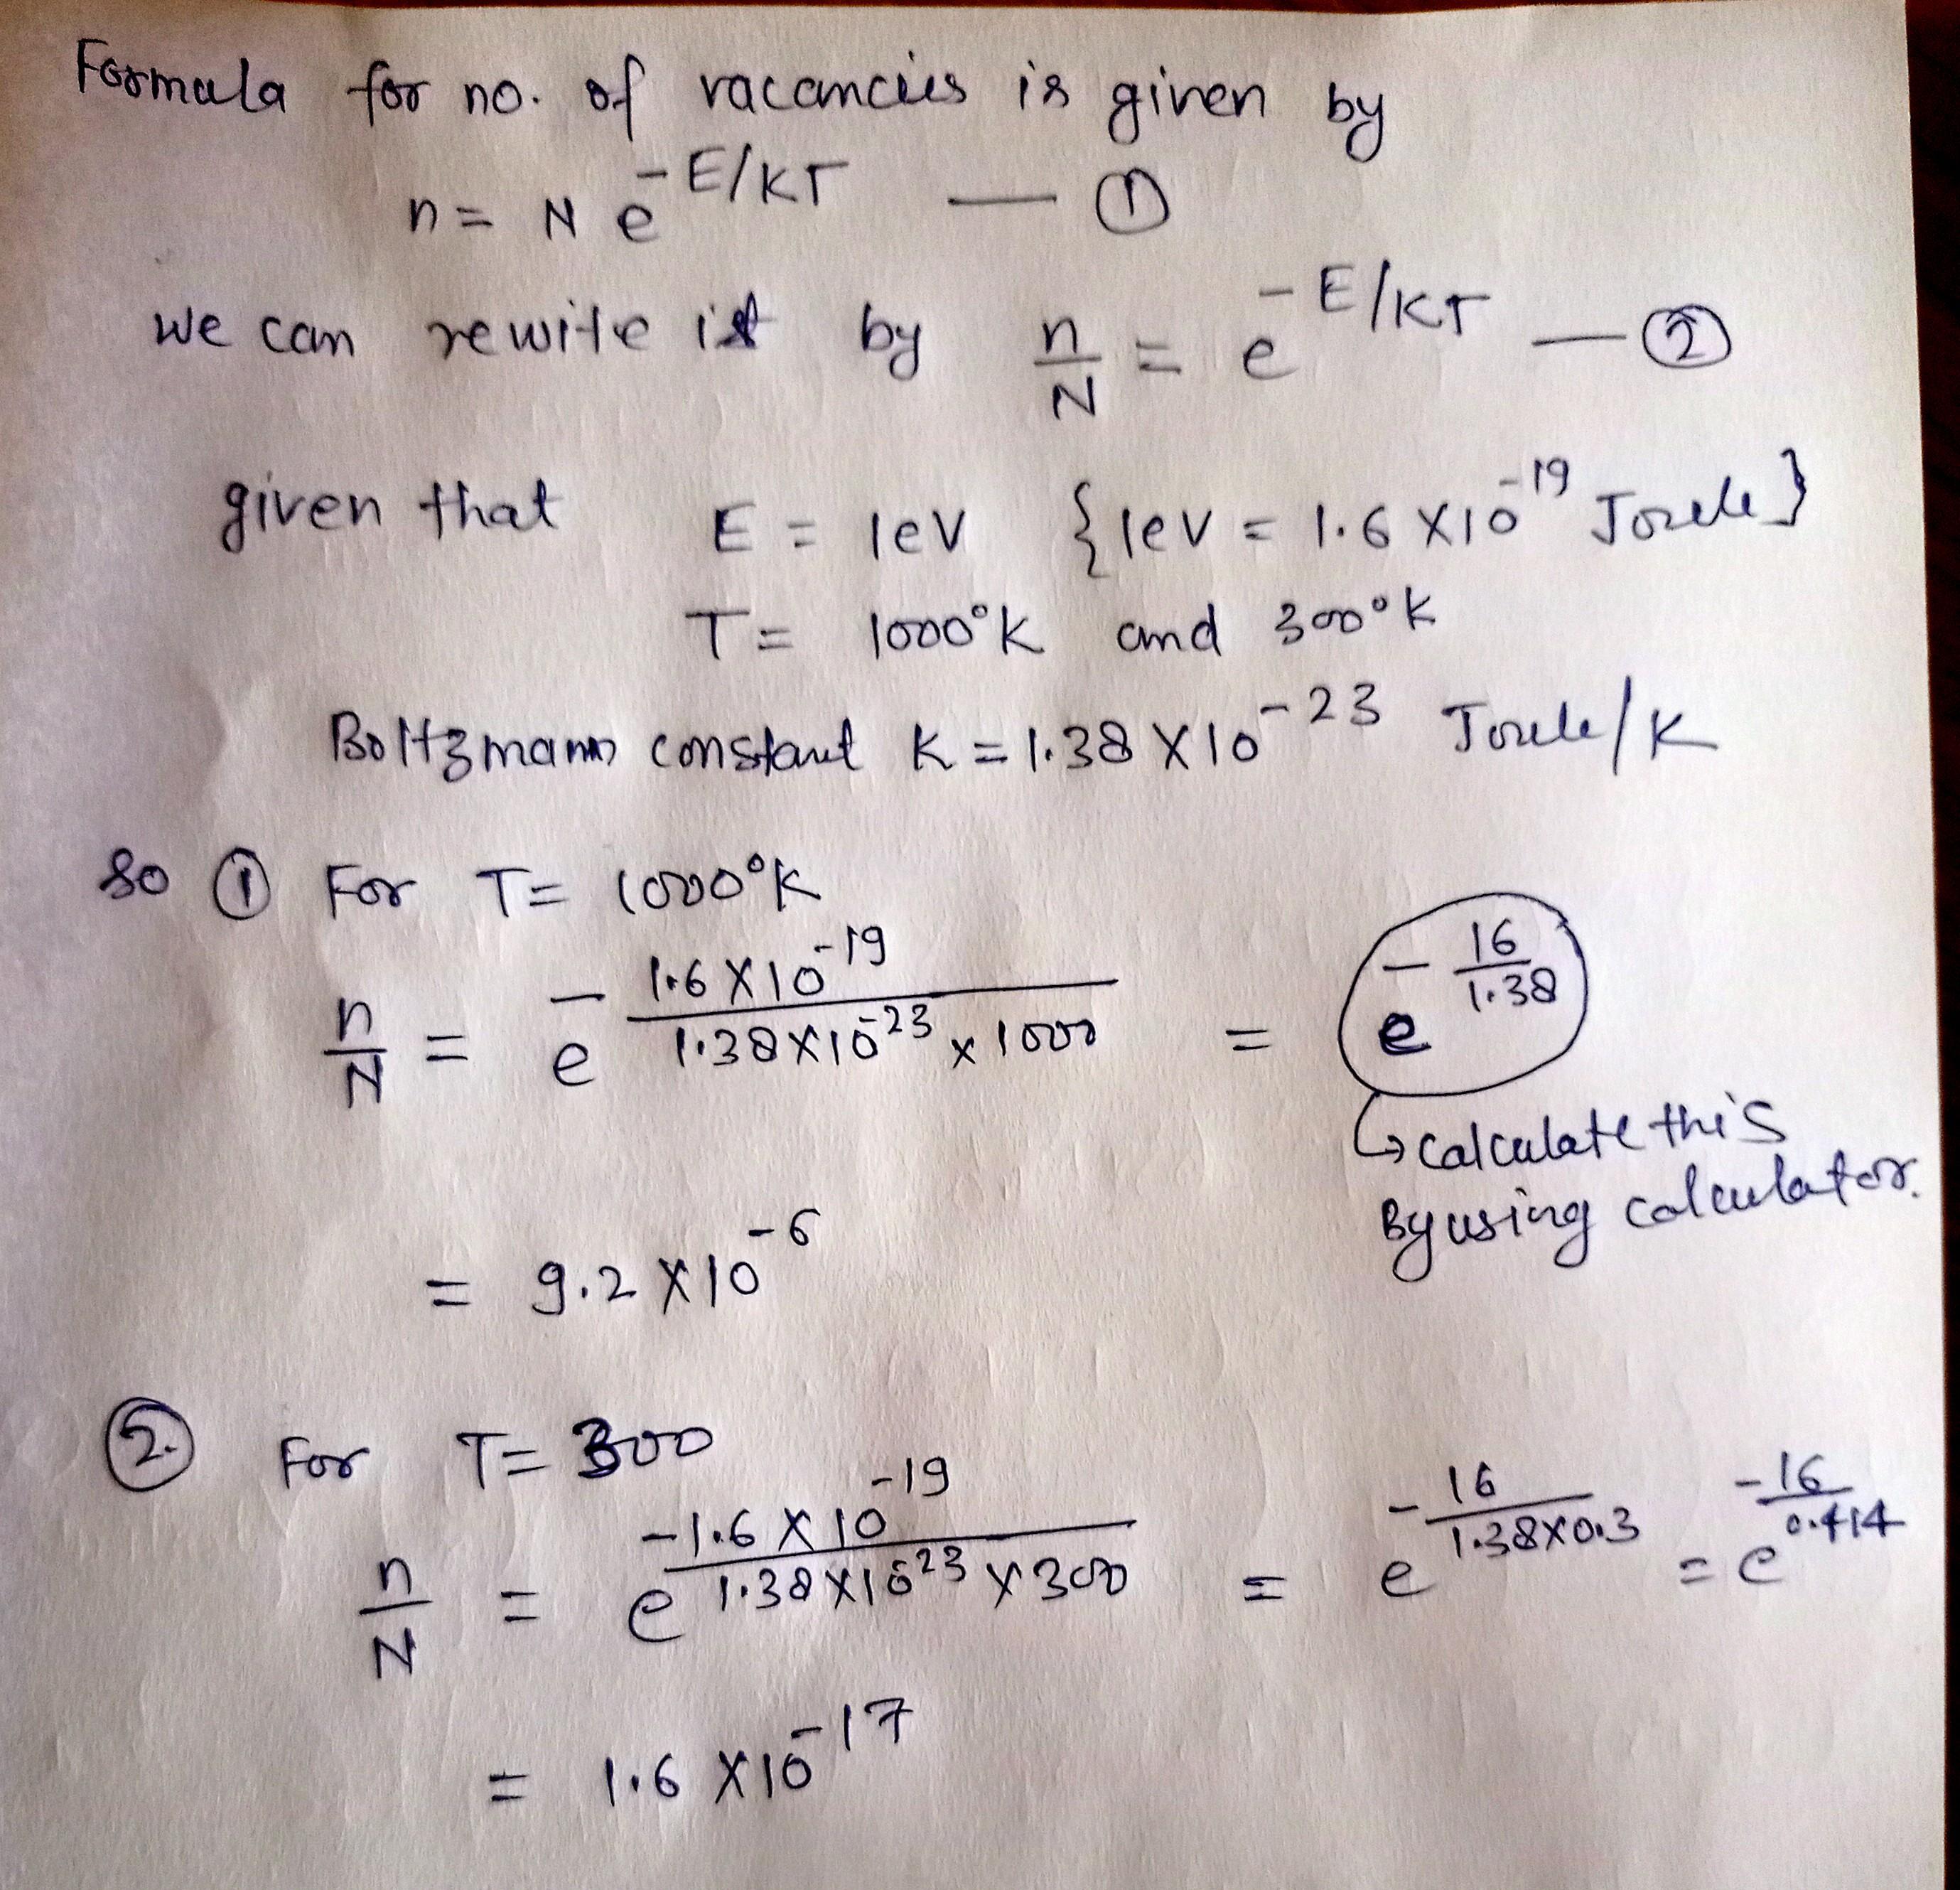 Formula for no. of vacancies is given by
n = N e^{-E/KT} — ①
we can rewite it by n/N = e^{-E/KT} — ②
given that E = 1eV {1eV = 1.6 X10^{-19} Joule}
T = 1000°K and 300°K
Boltzmann constant K = 1.38 X 10^{-23} Joule/K
So ① For T = 1000°K
n/N = e^{- (1.6 X 10^{-19})/(1.38 X 10^{-23} x 1000)} = e^{- 16/1.38}
↳ calculate this
By using calculator.
= 9.2 X 10^{-6}
②. For T = 300
n/N = e^{(-1.6 X 10^{-19})/(1.38 X 10^{-23} X 300)} = e^{- 16/(1.38X0.3)} = e^{-16/0.414}
= 1.6 X 10^{-17}